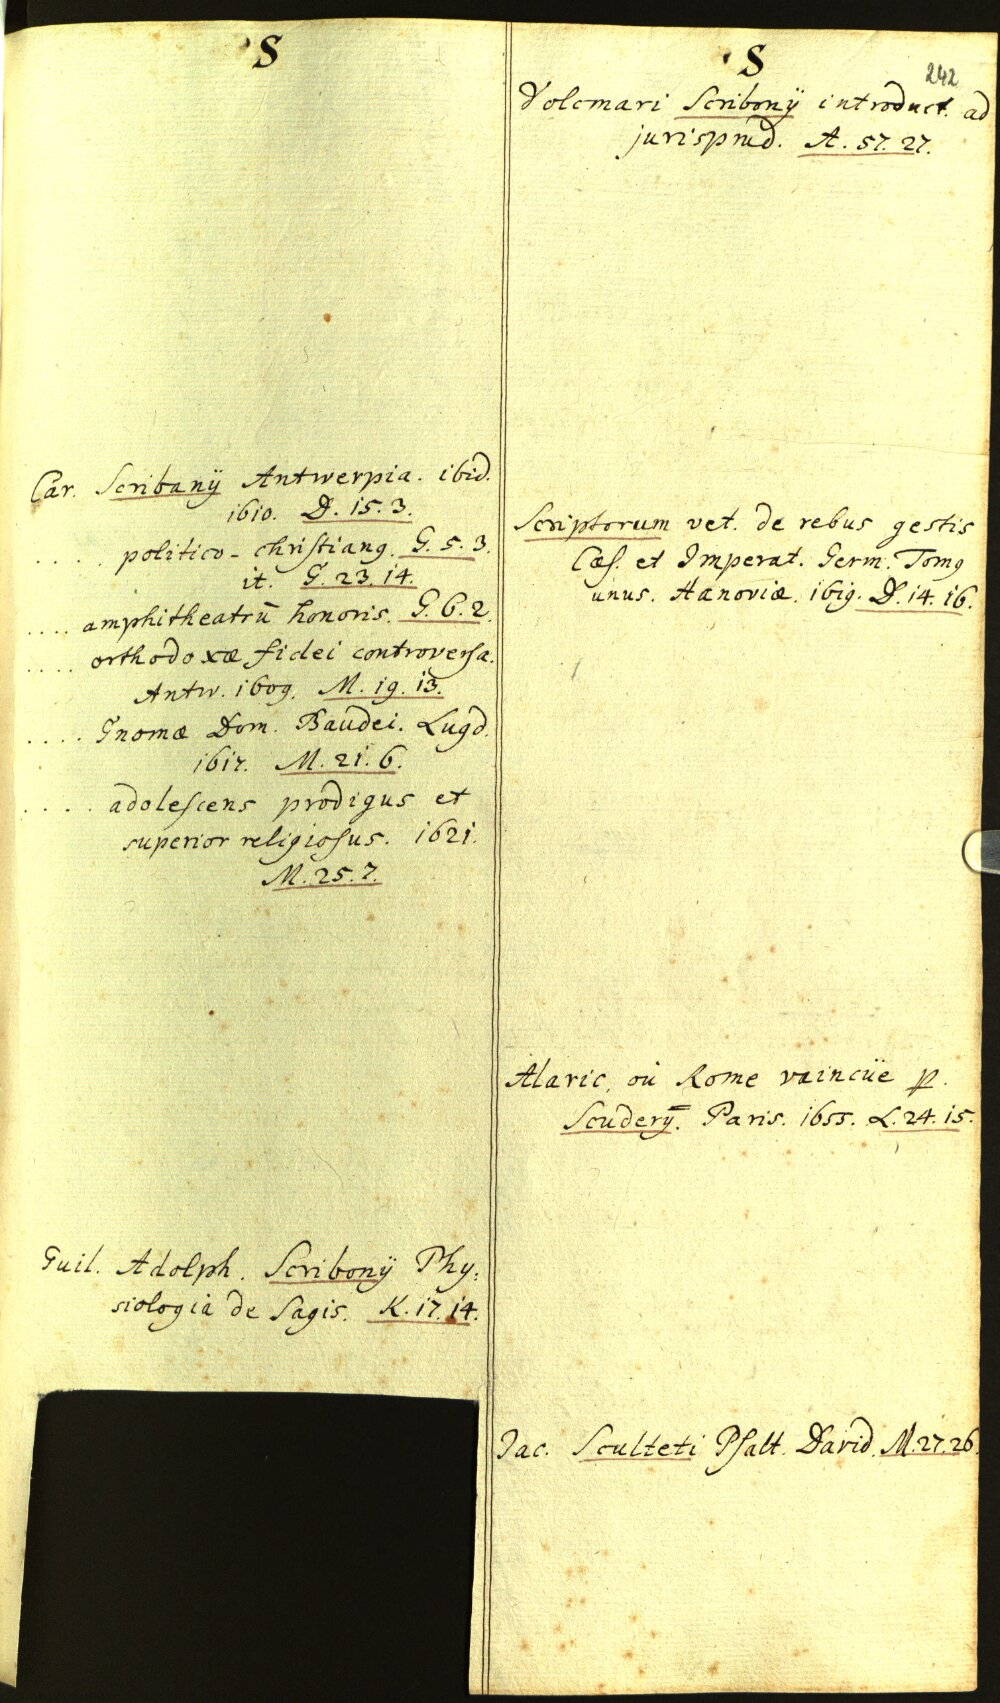 S
Car. Scribanÿ Antwerpia. ibid.
1610. D. 15. 3.
..... politico-christianꝯ. G. 5. 3.
it. G. 23. 14.
.... amphitheatrū honoris. G. 6. 2.
.... orthodoxæ fidei controversa.
Antw. 1609. M. 19. 13.
.... Gnomæ Dom. Baudei. Lugd.
1617. M. 21. 6.
.... adolescens prodigus et
superior religiosus. 1621.
M. 25. 7.
Guil. Adolph. Scribonÿ Phy:
siologia de Sagis. K. 17. 14.
S
242
Volcmari Scribonÿ introduct. ad
jurisprud. A. 57. 27.
Scriptorum vet. de rebus gestis
Cæs. et Imperat. Germ. Tomꝯ
unus. Hanoviæ. 1619. D. 14. 16.
Alaric, où Rome vaincüe p.
Scuderÿ. Paris. 1655. L. 24. 15.
Jac. Sculteti Psalt. David. M. 27. 26.